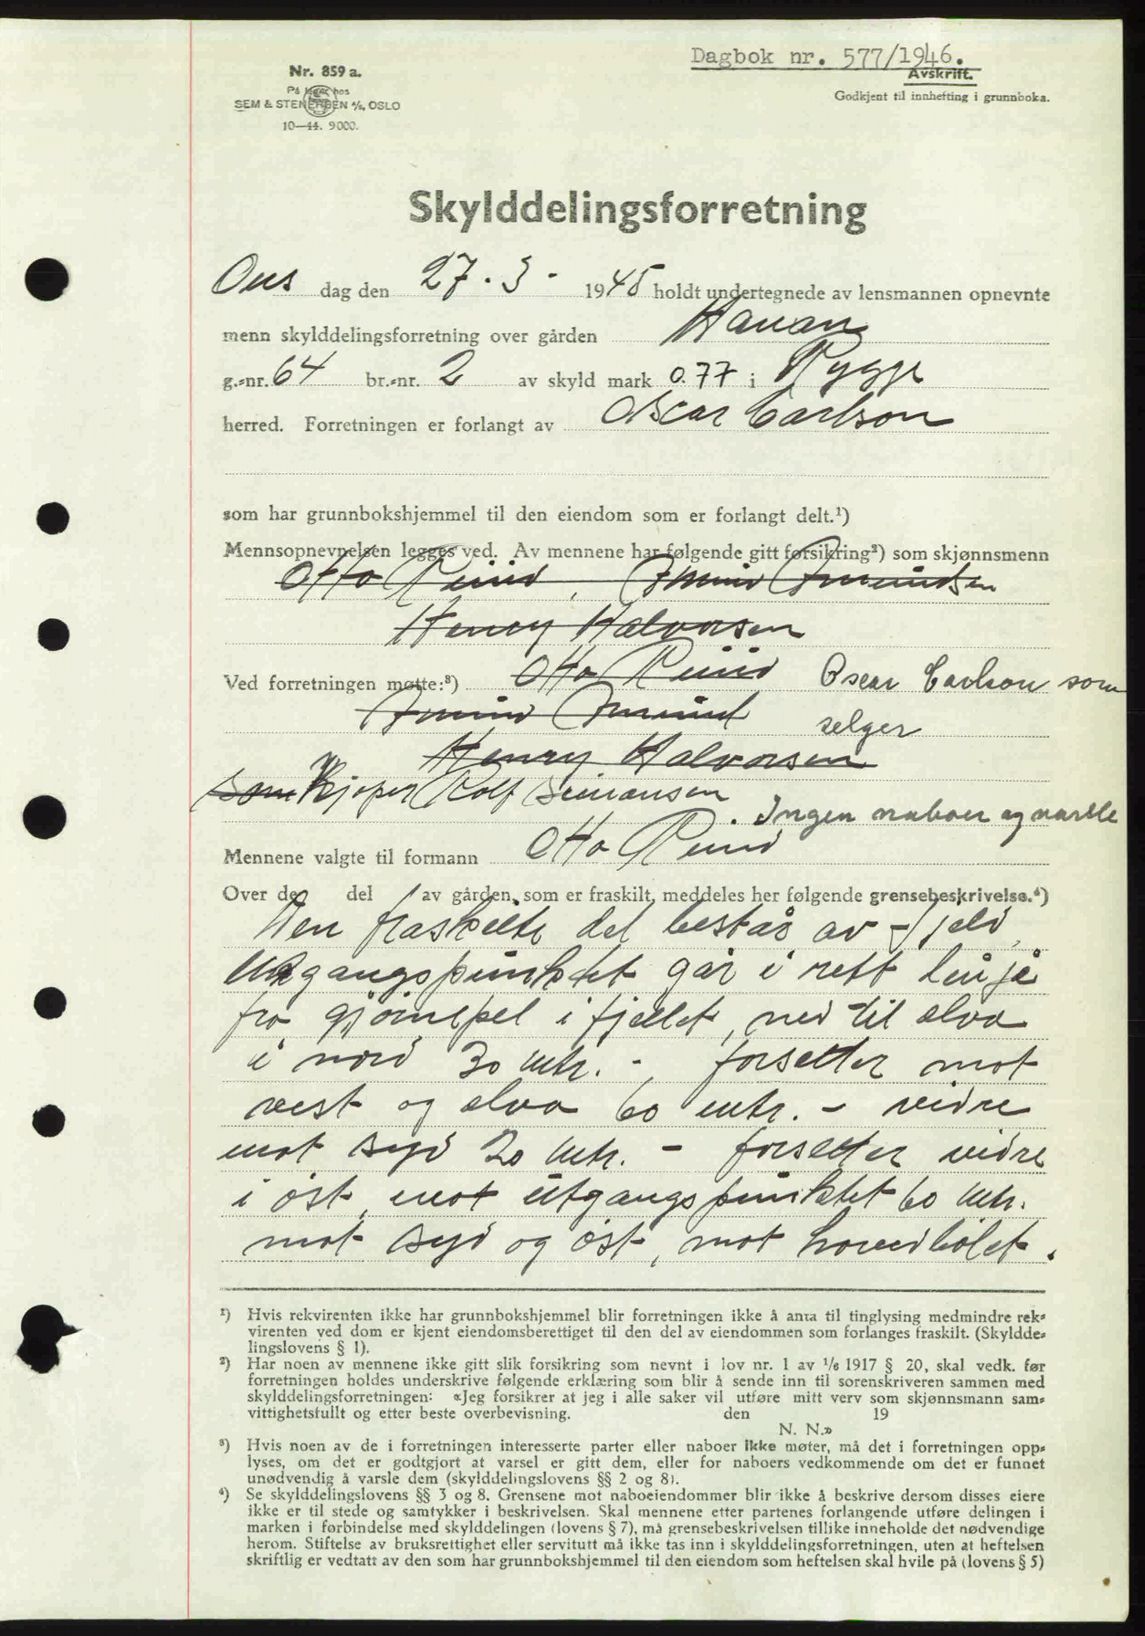 Dagbok nr. 577/1946.
Avskrift.
Godkjent til innhefting i grunnboka.
Nr. 859 a.
På lager hos
SEM & STENERSEN A/S, OSLO
10—44. 9000.
Skylddelingsforretning
Ons dag den 27 . 3 - 1945 holdt undertegnede av lensmannen opnevnte
menn skylddelingsforretning over gården
g.-nr. 64 br.-nr. 2 av skyld mark 0.77 i Rygge
herred. Forretningen er forlangt av Oscar Carlson
som har grunnbokshjemmel til den eiendom som er forlangt delt.¹)
Mennsopnevnelsen legges ved. Av mennene har følgende gitt forsikring²) som skjønnsmenn
Otto Ruud, Amund Amundsen
Henry Halvorsen
Ved forretningen møtte:³) Otto Ruud Oscar Carlson som
Amund Amund selger
Henry Halvorsen
som Kjøper Rolf Simonsen
Ingen naboer
Mennene valgte til formann Otto Ruud
Over de del av gården, som er fraskilt, meddeles her følgende grensebeskrivelse.⁴)
Den fraskilte del består av fjeld,
Utgangspunktet går i rett linje
fra i fjellet, ned til elva
i nord 30 mtr. -, forsetter mot
vest og elva 60 mtr. - vidre
mot syd 20 mtr. - forsetter vidre
i øst, mot utgangspunktet 60 mtr.
mot syd og øst, mot hovedbølet.
¹) Hvis rekvirenten ikke har grunnbokshjemmel blir forretningen ikke å anta til tinglysing medmindre rek-
virenten ved dom er kjent eiendomsberettiget til den del av eiendommen som forlanges fraskilt. (Skyldde-
lingslovens § 1).
²) Har noen av mennene ikke gitt slik forsikring som nevnt i lov nr. 1 av ¹/₆ 1917 § 20, skal vedk. før
forretningen holdes underskrive følgende erklæring som blir å sende inn til sorenskriveren sammen med
skylddelingsforretningen: «Jeg forsikrer at jeg i alle saker vil utføre mitt verv som skjønnsmann sam-
vittighetsfullt og etter beste overbevisning. den 19
N. N.»
³) Hvis noen av de i forretningen interesserte parter eller naboer ikke møter, må det i forretningen opp-
lyses, om det er godtgjort at varsel er gitt dem, eller for naboers vedkommende om det er funnet
unødvendig å varsle dem (skylddelingslovens §§ 2 og 8).
⁴) Se skylddelingslovens §§ 3 og 8. Grensene mot naboeiendommer blir ikke å beskrive dersom disses eiere
ikke er til stede og samtykker i beskrivelsen. Skal mennene etter partenes forlangende utføre delingen i
marken i forbindelse med skylddelingen (lovens § 7), må grensebeskrivelsen tillike inneholde det nødvendige
herom. Stiftelse av bruksrettighet eller servitutt må ikke tas inn i skylddelingsforretningen, uten at heftelsen
skriftlig er vedtatt av den som har grunnbokshjemmel til den eiendom som heftelsen skal hvile på (lovens § 5)